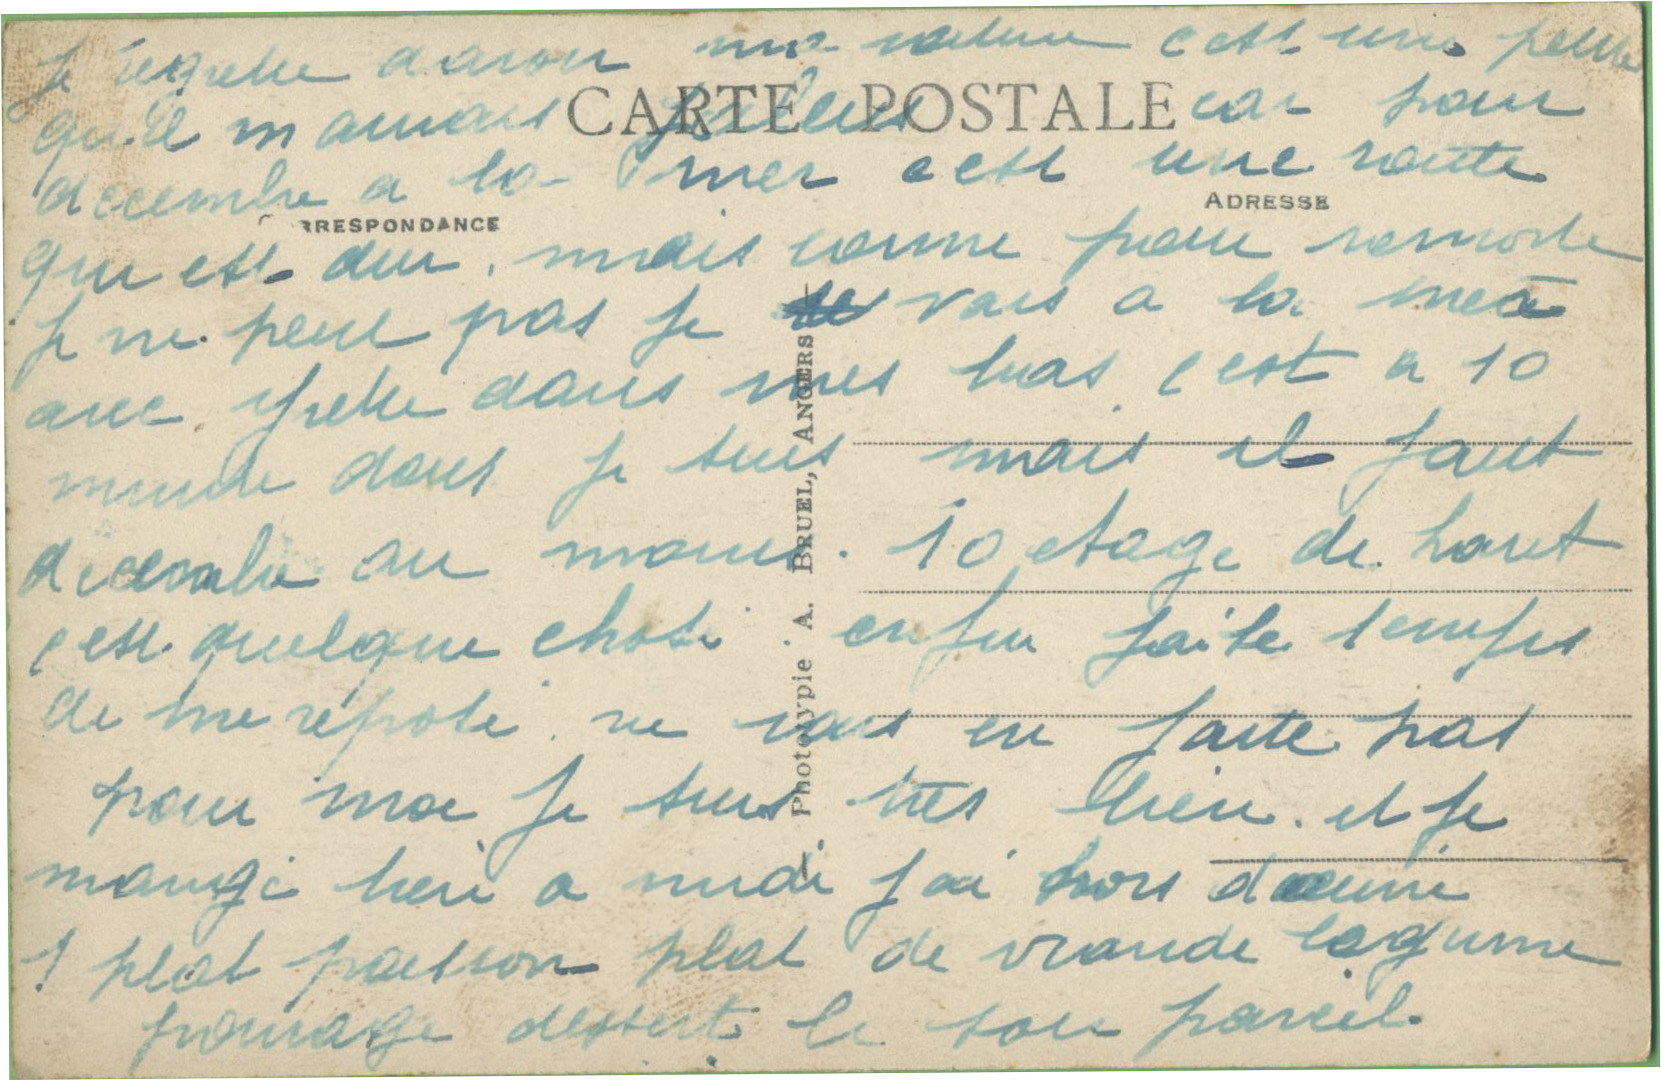 je regrette davoir ma voiture c est une petite
qu'il m aurais fallus car pour
CARTE POSTALE
decembre a la mer c est une route
CORRESPONDANCE
ADRESSE
qui est dur, mais comme pour remonte
je ne peut pas je vais a la mer
avec Yvette dans mes bras c est a 10
minute dous je suis mais il faut
decembre au moins. 10 etage de haut
c est quelque chose enfin jai le temps
de me repose. ne vous en faite pas
pour moi je suis très bien. et je
mange bien a midi j ai hors d oeuvre
1 plat poisson plat de viande legume
fromage dessert le soir pareil.
Phototypie . A. BRUEL, ANGERS